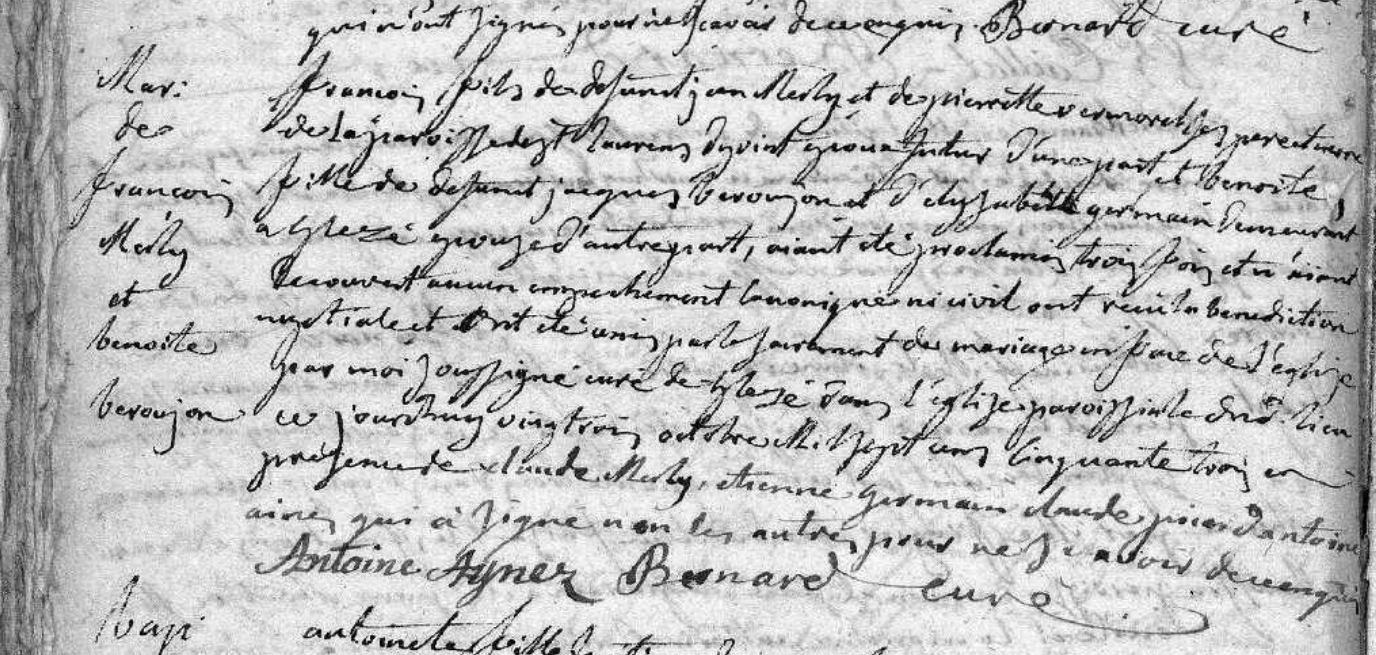 qui n'ont signés pour ne sçavoir de ce enquis. Bernard curé
Mari:
de
francois
Merly
et
benoite
beroujon
francois fils de defunt jean Merly et de pierrette vermorel ses pere et mere
de la paroisse de st laurens d'yoint epoux futur d'une part et benoite,
fille de defunt jacques beroujon et d'elysabeth germain demeurant
a glezé epouse d'autre part, aiant été proclamés trois fois et n'aiant
decouvert aucun empechement canonique ni civil ont reçu la benediction
nuptiale et ont été unis par le sacrement de mariage en face de l'eglise
par moi soussigné curé de glezé dans l'eglise paroissiale dud. lieu
ce jourd'huy vingt trois octobre Mil sept cens cinquante trois en
presence de claude Merly, etienne germain claude picard antoine
ainés qui a signé non les autres pour ne sçavoir de ce enquis
Antoine Aynez Bernard curé
bapt
antoinete fille